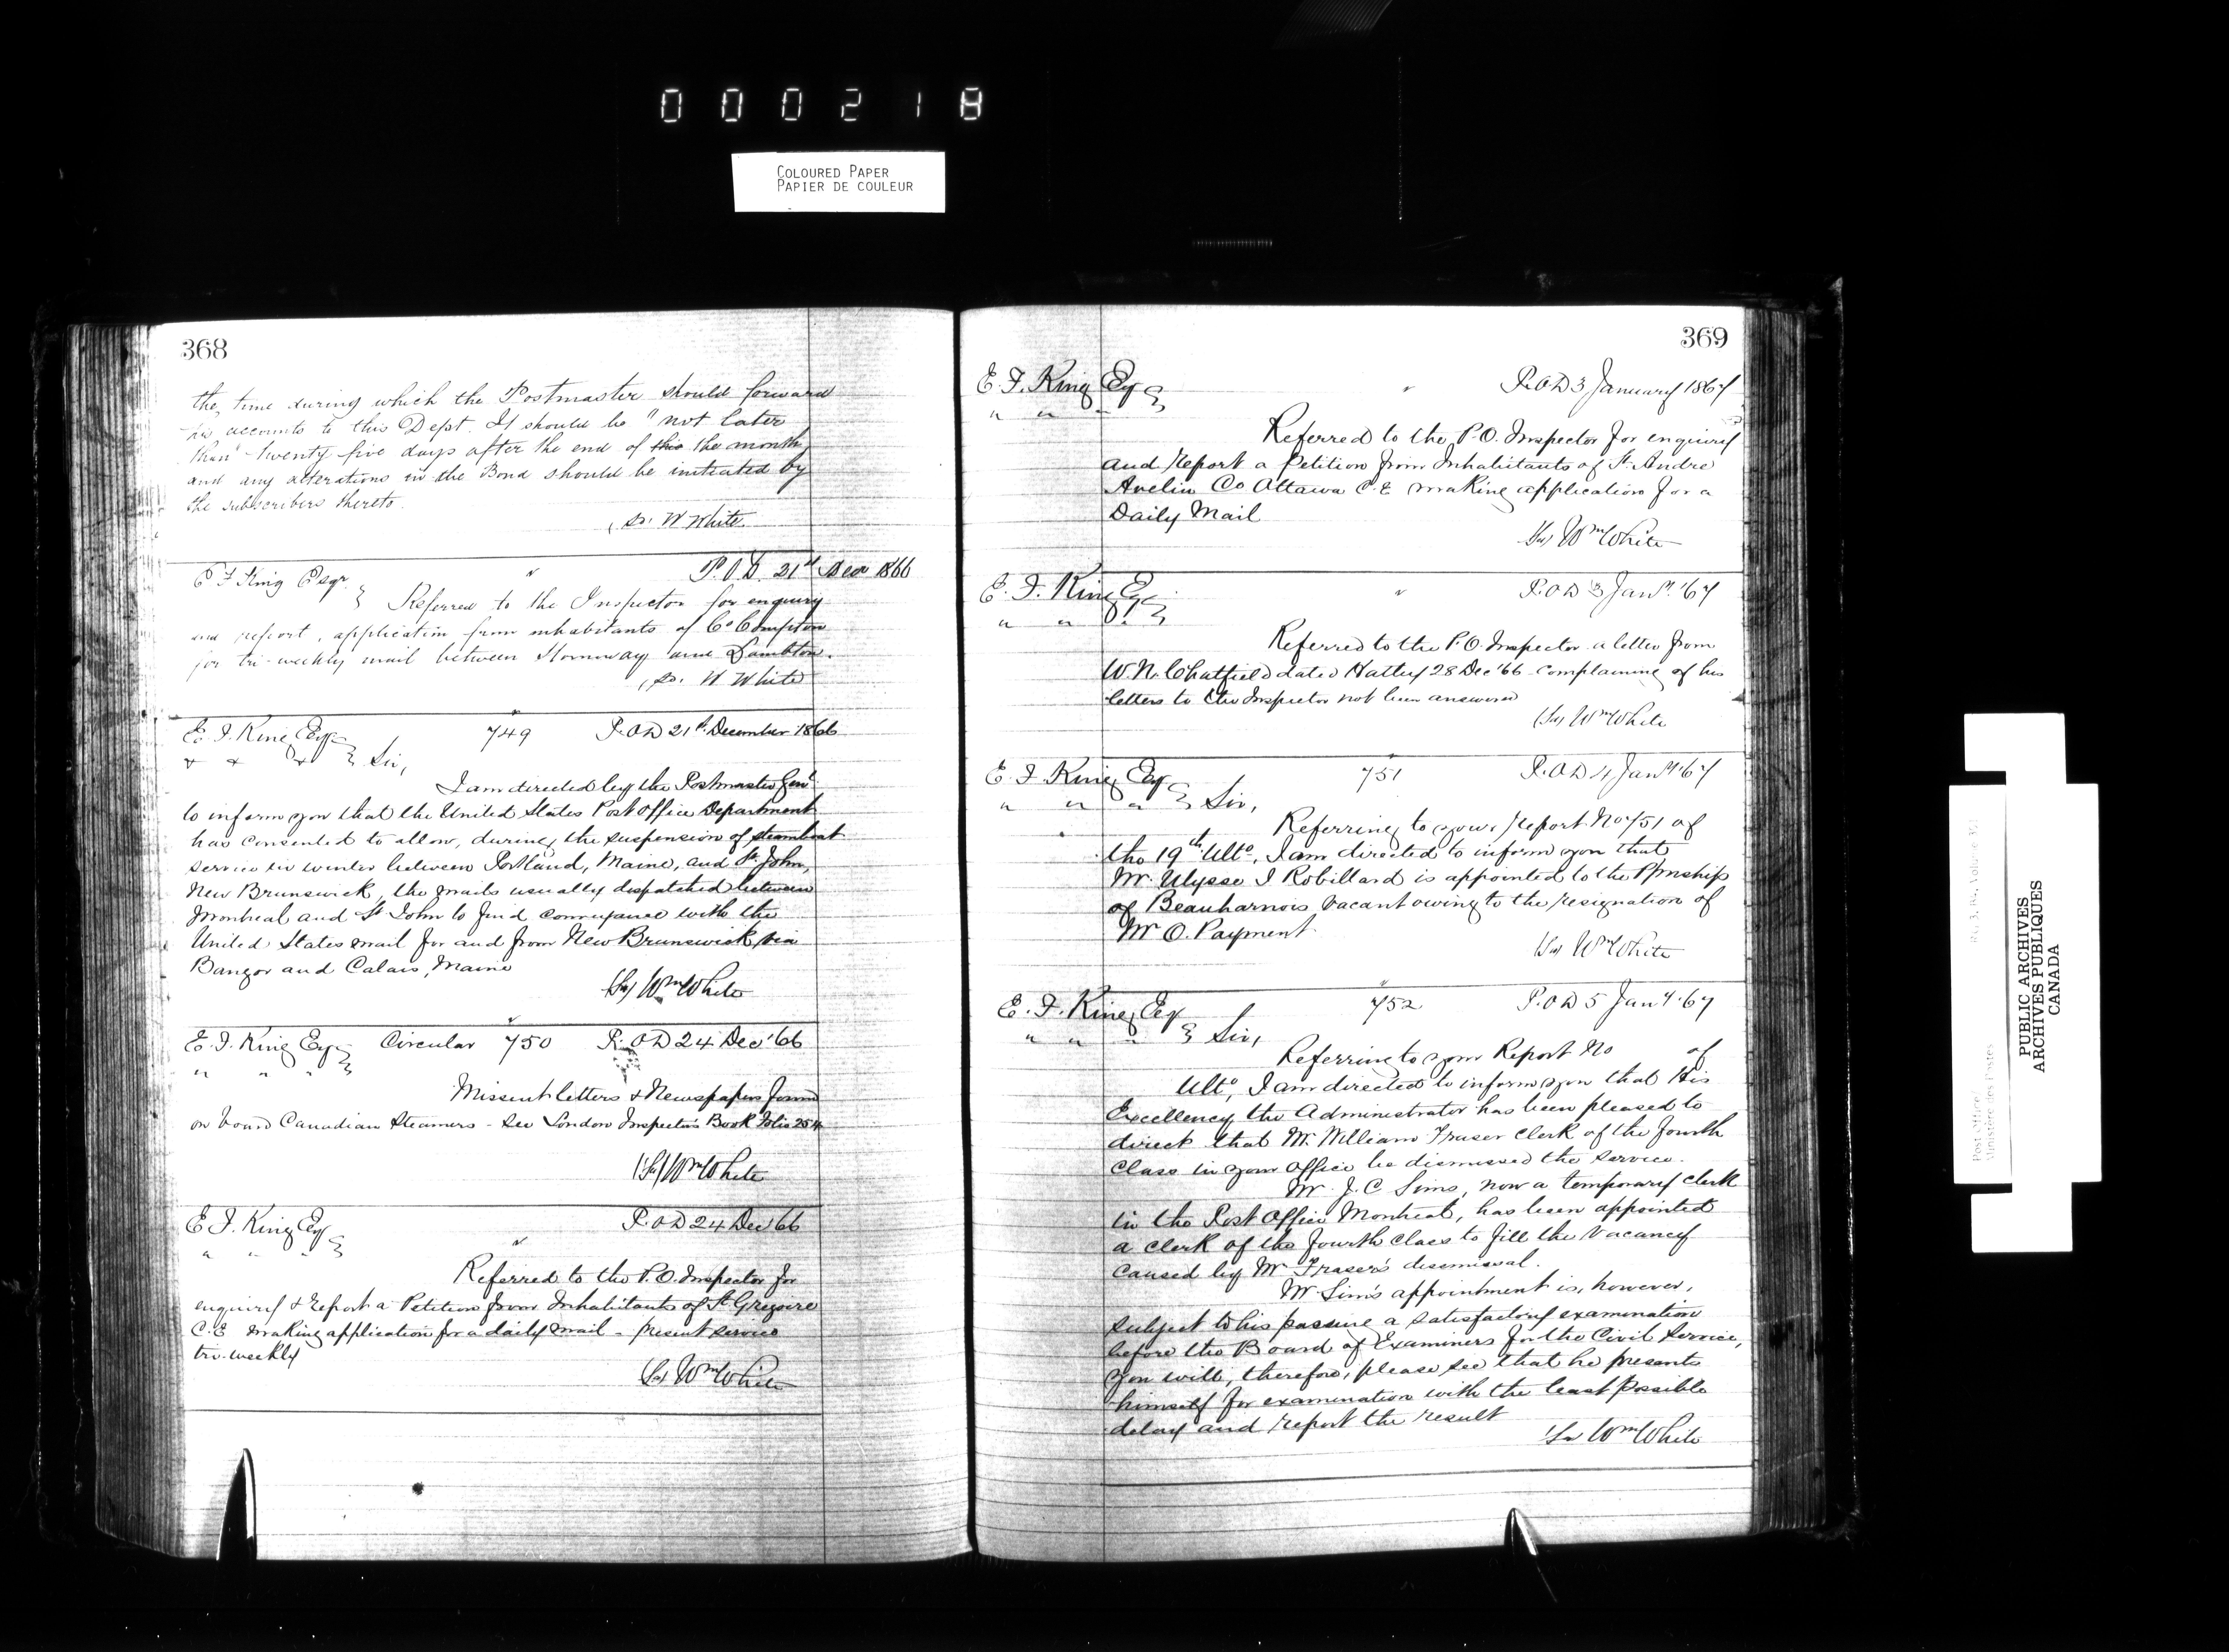 000218
COLOURED PAPER
PAPIER DE COULEUR
368
the time during which the Postmaster should forward
his accounts to this Dept. It should be "not later
than" twenty five days after the end of this the month
and any alterations in the Bond should be initiated by
the subscribers thereto.
W White
E F King Esqr. P.O.D. 21st Decr 1866
Referred to the Inspector for enquiry
and report, application from inhabitants of Co Compton
for tri-weekly mail between Stornoway and Lambton.
W White
E. F. King Esqr 749 P.O.D 21st December 1866
Sir,
I am directed by the Postmaster Genl
to inform you that the United States Post Office Department
has consented to allow, during the suspension of steamboat
service in winter between Portland, Maine, and St. John,
New Brunswick, the mails usually dispatched between
Montreal and St John to find conveyance with the
United States mail for and from New Brunswick via
Bangor and Calais, Maine
(Sd) Wm White
E. F. King Esqr Circular 750 P.O.D 24 Dec '66
" " "
Missent letters & Newspapers found
on board Canadian Steamers - See London Inspectors Book Folio 254
(Sd) Wm White
E F. King Esqr P.O.D 24 Dec '66
" " "
Referred to the P.O. Inspector for
enquiry & Report a Petition from Inhabitants of St Gregoire
C.E making application for a daily mail - present service
tri-weekly
(Sd) Wm White
369
E. F. King Esqr P.O.D 3 January 1867
" " "
Referred to the P.O. Inspector for enquiry
and Report a Petition from Inhabitants of St. Andre
Avelin Co Ottawa C.E making application for a
Daily Mail
(Sd) Wm White
E. F. King Esqr P.O.D 3 Jany. '67
" "
Referred to the P.O. Inspector a letter from
W. N. Chatfield dated Hatley 28 Dec '66 complaining of his
letters to the Inspector not been answered
(Sd) Wm White
E. F King Esqr 751 P.O.D 4 Jany '67
" " " Sir,
Referring to your Report No 751 of
the 19th Ulto, I am directed to inform you that
Mr. Ulysse I Robillard is appointed to the Pmship
of Beauharnois vacant owing to the resignation of
Mr O. Payment.
(Sd) Wm White
E. F. King Esqr 752 P.O.D 5 Jany '67
" " " Sir,
Referring to your Report No of
Ulto, I am directed to inform you that His
Excellency the Administrator has been pleased to
direct that Mr. William Fraser Clerk of the fourth
Class in your office be dismissed the service.
Mr. J. C Sims, now a temporary clerk
in the Post Office Montreal, has been appointed
a clerk of the fourth class to fill the vacancy
caused by Mr Fraser's dismissal.
Mr Sim's appointment is, however,
subject to his passing a satisfactory examination
before the Board of Examiners for the Civil Service,
you will, therefore, please see that he presents
himself for examination with the least possible
delay and report the result
(Sd Wm White
PUBLIC ARCHIVES
ARCHIVES PUBLIQUES
CANADA